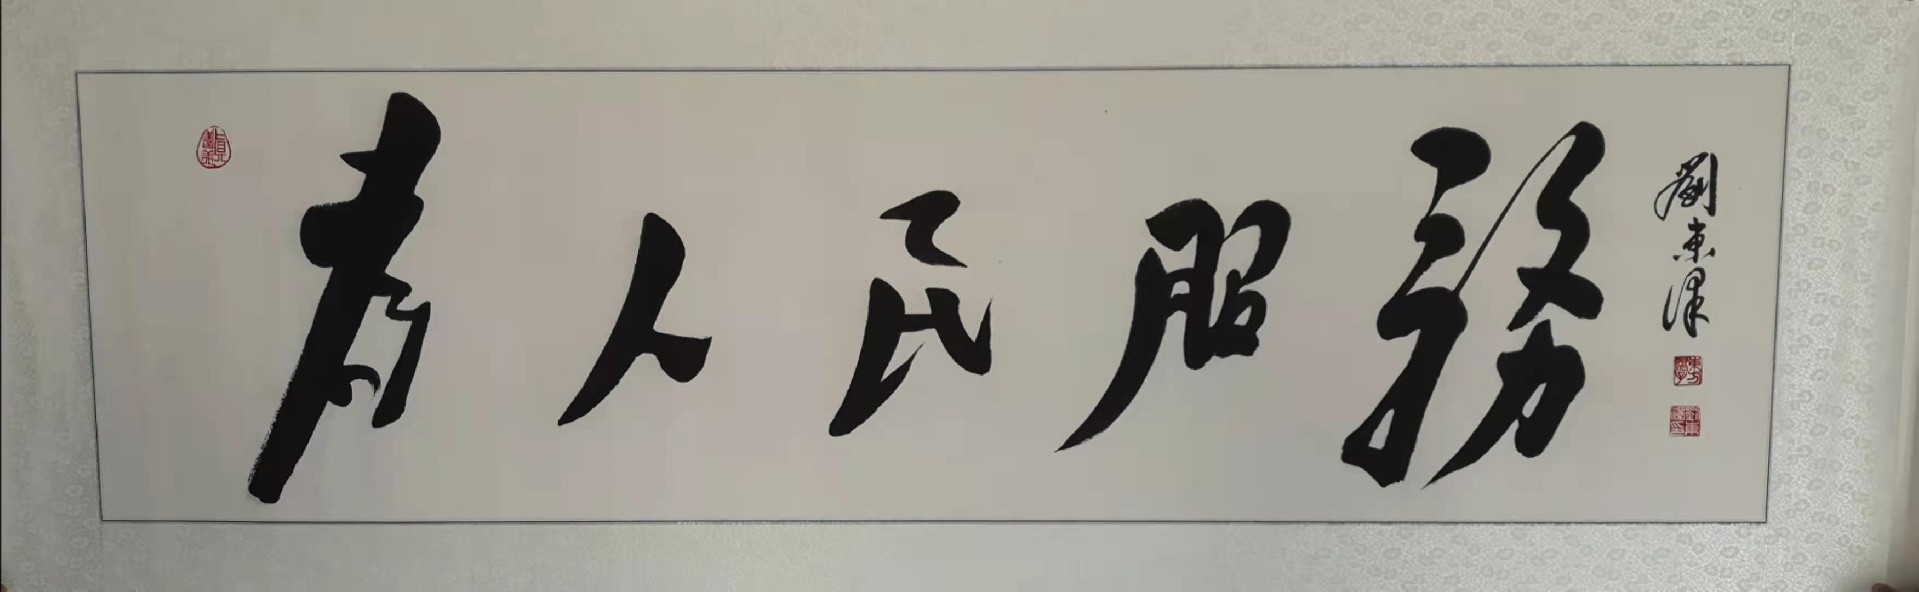 為人民服務
劉東